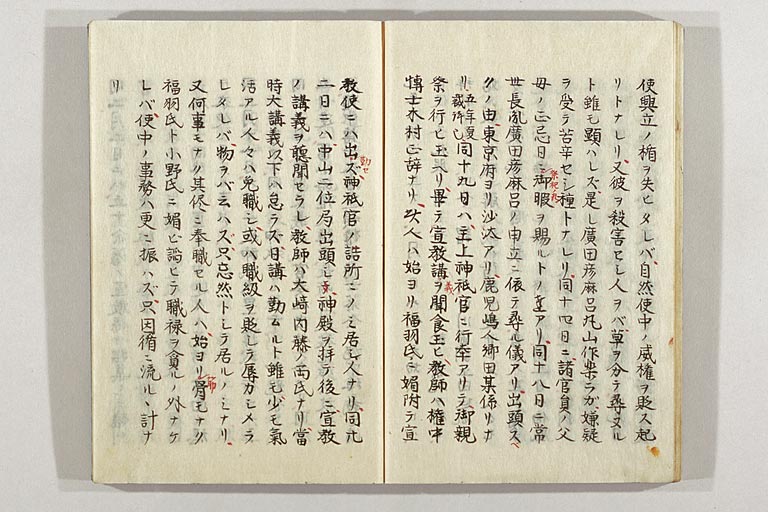 使興立ノ楯ヲ失ヒタレバ自然使中ノ威權ヲ貶ス起
リトナレリ又彼ヲ殺害セシ人ヲバ草ヲ分テ尋ヌル
ト雖モ顕ハレズ是レ廣田彦麻呂丸山作楽ラガ嫌疑
ヲ受テ苦辛セシ種トナレリ同十四日ニ諸官員ノ父
母ノ正忌日ニ御暇ヲ賜ルトノ達アリ同十八日ニ常
世長胤廣田彦麻呂ノ申立ニ依テ尋ル儀アリ出頭ス
ノ由東京府ヨリ沙汰アリ鹿児嶋人郷田某係リナ
リ 同十九日ハ主上神祇官ニ行幸アリテ御親
祭ヲ行ヒ玉ヘリ畢テ宣教講義ヲ聞食玉ヒ教師ハ權中
博士木村正辞ナリ 此人ハ始ヨリ福羽氏ニ媚附テ宣
教使ニハ出ズ神祇官ノ詰所ニノミ居シ人ナリ同廿
二日ニハ中山二位局出頭シ 神殿ヲ拝テ後ニ宣教
ノ講義ヲ聴聞セラレ教師ハ大崎内藤ノ両氏ナリ當
時大講義以下ハ怠ラズ日講ハ勤ムルト雖モ少モ氣
活アル人々ハ免職シ或ハ職級ヲ貶シテ辱カシメラ
レタレバ物ヲバ云ハズ只忘然トシテ居ルノミナリ
又何事モナク其侭ニ奉職セル人ハ始ヨリ骨モナク
福羽氏ト小野氏ニ媚ヒ諂ヒテ職禄ヲ貪ルノ外ナケ
レバ使中ノ事務ハ更ニ振ハズ只因循ニ流ルヽ計ナ
リ